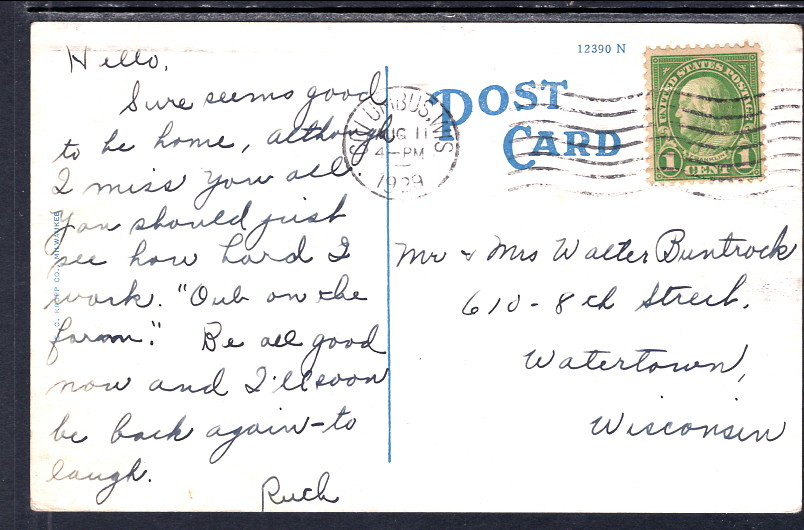 Hello,
Sure seems good
to be home, although
I miss you all.
You should just
see how hard I
work. "Out on the
farm." Be all good
now and I'll soon
be back again - to
laugh.
Ruth
12390 N
POST
CARD
COLUMBUS, WIS
AUG 11
4-PM
1929
UNITED STATES POSTAGE
FRANKLIN
1 CENT 1
Mr & Mrs Walter Buntrock
610 - 8th Street.
Watertown,
Wisconsin
E. C. KROPP CO., MILWAUKEE